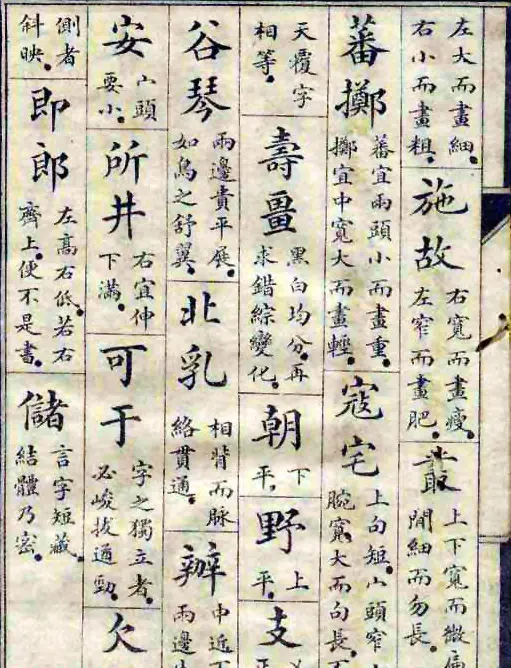 左大而畫細
右小而畫粗
施故
右寬而畫瘦
左窄而畫肥
叢
上下寬而微
間細而勿長
蕃擲
蕃宜兩頭小而畫重
擲宜中寬大而畫輕
寇宅
上勾短宀頭窄
腕寬大而勾長
天覆字
相等
壽畺
黑白均分再
求錯綜變化
朝
下
平
野
上
平
支
谷琴
兩邊貴平展
如鳥之舒翼
北乳
相背而脈
絡貫通
辦
中近下
兩邊
安
宀頭
要小
所井
右宜伸
下滿
可于
字之獨立者
必峻拔遒勁
欠
側者
斜映
即郎
左高右低若右
齊上便不是書
儲
言字短藏
結體乃密